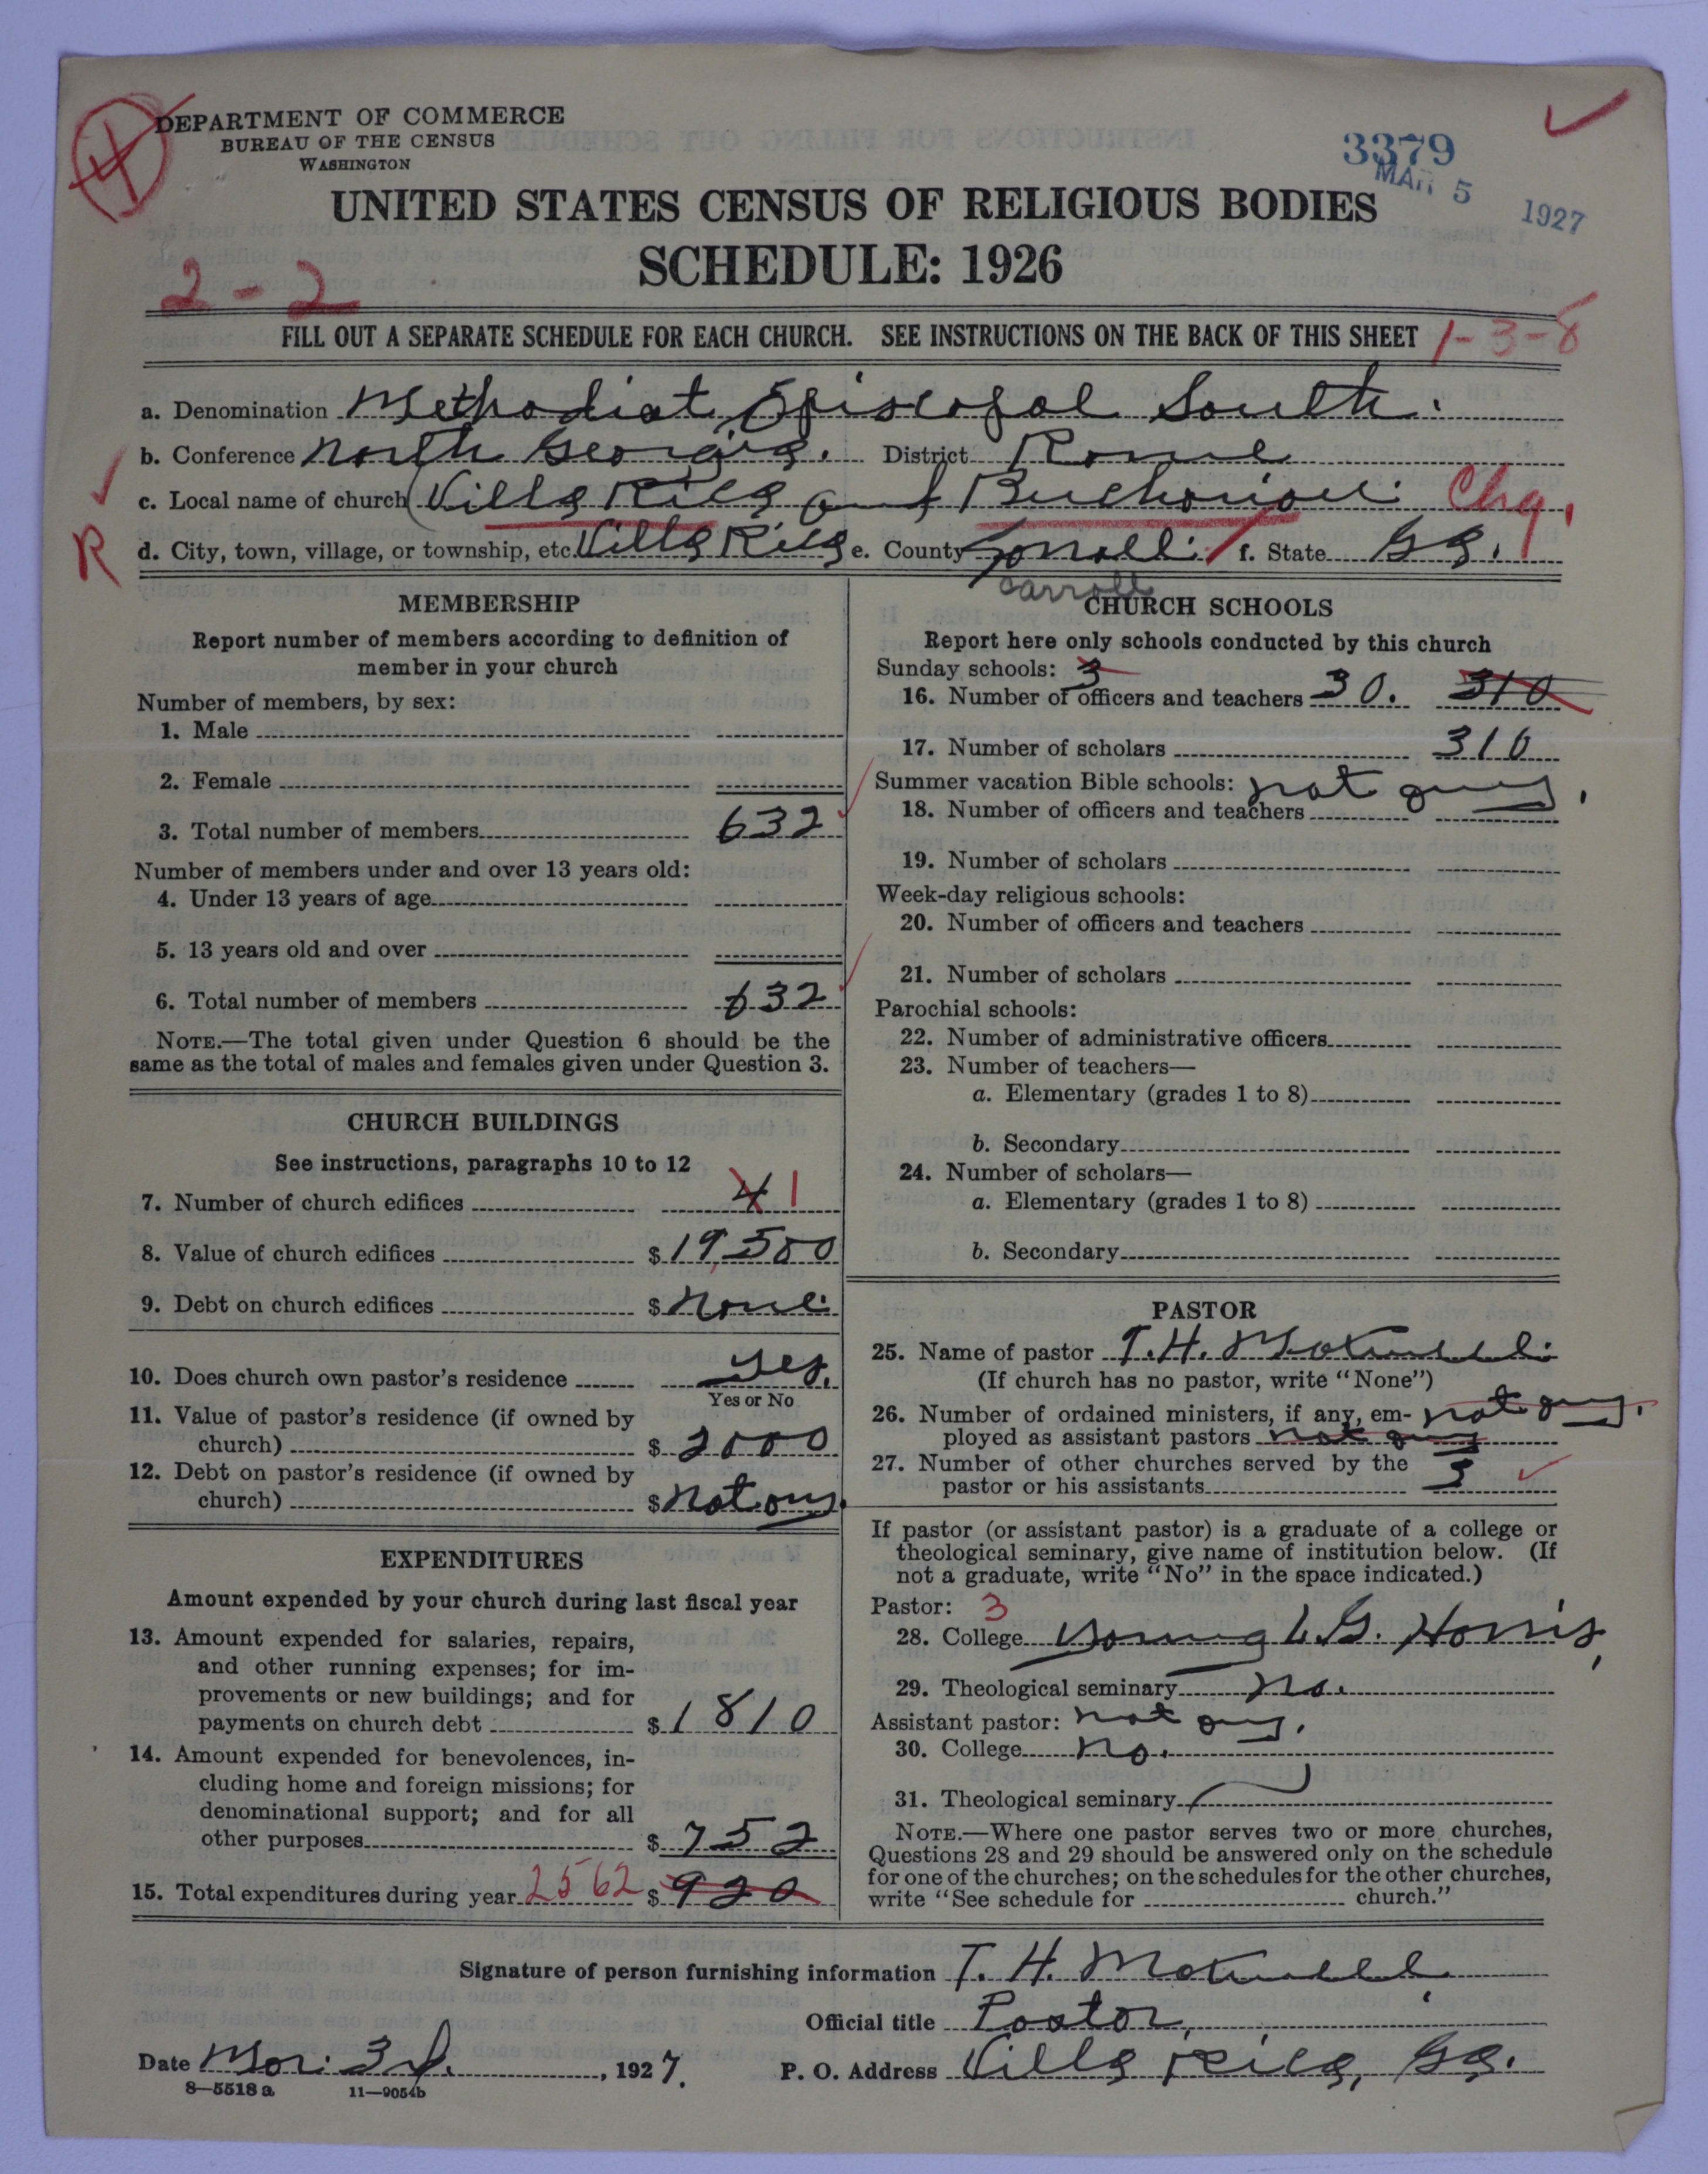 DEPARTMENT OF COMMERCE
BUREAU OF THE CENSUS
WASHINGTON
3379
MAR 5 1927
UNITED STATES CENSUS OF RELIGIOUS BODIES
SCHEDULE: 1926
2-2
FILL OUT A SEPARATE SCHEDULE FOR EACH CHURCH. SEE INSTRUCTIONS ON THE BACK OF THIS SHEET 1-3-8
a. Denomination Methodist Episcopal South.
b. Conference North Georgia. District Rome
c. Local name of church Villa Rica and Chg.
R d. City, town, village, or township, etc. Villa Rica e. County Carroll f. State Ga.
carroll
MEMBERSHIP
Report number of members according to definition of
member in your church
Number of members, by sex:
1. Male
2. Female
3. Total number of members 632
Number of members under and over 13 years old:
4. Under 13 years of age
5. 13 years old and over
6. Total number of members 632
NOTE.—The total given under Question 6 should be the
same as the total of males and females given under Question 3.
CHURCH BUILDINGS
See instructions, paragraphs 10 to 12
7. Number of church edifices 4 1
8. Value of church edifices $ 19,500
9. Debt on church edifices $ none
10. Does church own pastor's residence yes.
Yes or No
11. Value of pastor's residence (if owned by
church) $ 2000
12. Debt on pastor's residence (if owned by
church) $ not any.
EXPENDITURES
Amount expended by your church during last fiscal year
13. Amount expended for salaries, repairs,
and other running expenses; for im-
provements or new buildings; and for
payments on church debt $ 1810
14. Amount expended for benevolences, in-
cluding home and foreign missions; for
denominational support; and for all
other purposes $ 752
15. Total expenditures during year 2562 $ 920
CHURCH SCHOOLS
Report here only schools conducted by this church
Sunday schools: 3
16. Number of officers and teachers 30. 310
17. Number of scholars 310
Summer vacation Bible schools: not any.
18. Number of officers and teachers
19. Number of scholars
Week-day religious schools:
20. Number of officers and teachers
21. Number of scholars
Parochial schools:
22. Number of administrative officers
23. Number of teachers—
a. Elementary (grades 1 to 8)
b. Secondary
24. Number of scholars—
a. Elementary (grades 1 to 8)
b. Secondary
PASTOR
25. Name of pastor T. H.
(If church has no pastor, write "None")
26. Number of ordained ministers, if any, em- not any.
ployed as assistant pastors not any
27. Number of other churches served by the
pastor or his assistants 3
If pastor (or assistant pastor) is a graduate of a college or
theological seminary, give name of institution below. (If
not a graduate, write "No" in the space indicated.)
Pastor: 3
28. College Young L. G. Harris,
29. Theological seminary no.
Assistant pastor: not any.
30. College no.
31. Theological seminary
NOTE.—Where one pastor serves two or more churches,
Questions 28 and 29 should be answered only on the schedule
for one of the churches; on the schedules for the other churches,
write "See schedule for church."
Signature of person furnishing information T. H.
Official title Pastor,
Date Mar. 3d. , 1927. P. O. Address Villa Rica, Ga.
8—5518 a 11—9054b